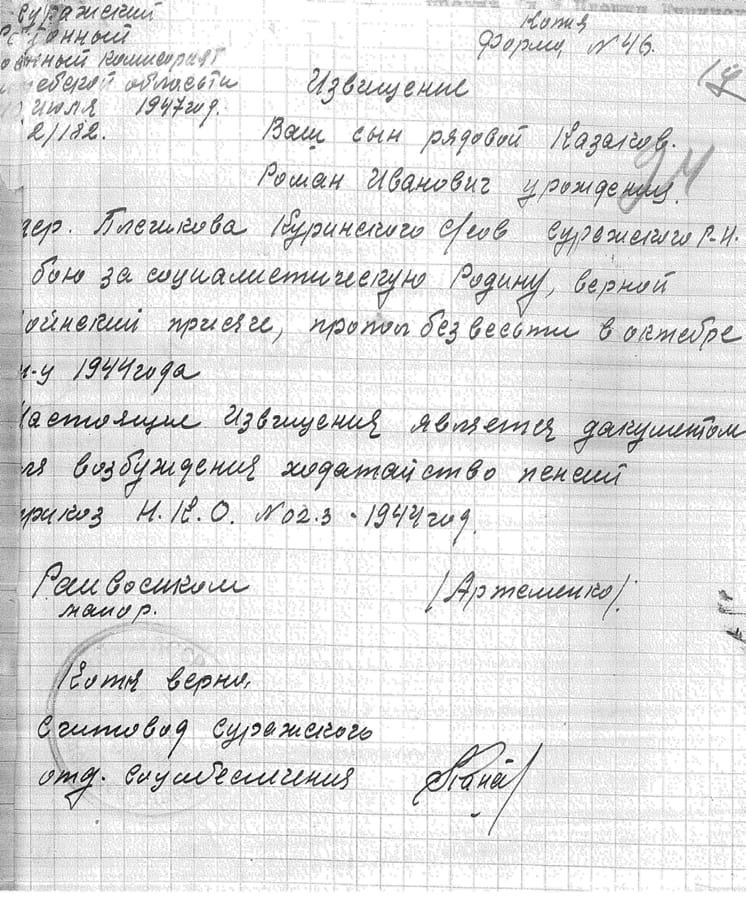 Суражский
Районный
Военный комисориат
тебской области
июля 1947 год.
2/182.
Копия
Форма N 46.
Извищение
Ваш сын рядовой Казаков.
Роман Иванович урождениц.
дер. Плетикова Куринского с/сов Суражского Р-Н.
бою за социалистическую Родину, верной
оинский присяге, пропал без весьти в октебре
м-у 1944 года
Настоящие Извищения является дакументом
ля возбуждения ходатайство пенсий
приказ Н.К.О. N 02.3 - 1944 год.
Раивоенком
маиор.
/Артеменко/.
Копия верно,
Считовод Суражского
отд. Соцобеспечения